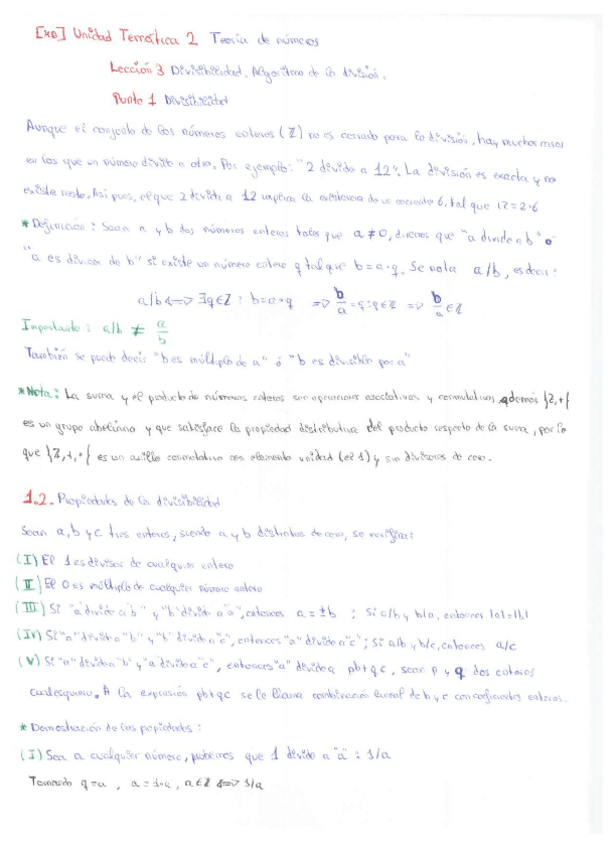 [MD] Unidad Temática 2 Teoría de números
Lección 3 Divisibilidad. Algoritmo de la división.
Punto 1 Divisibilidad
Aunque el conjunto de los números enteros (ℤ) no es cerrado para la división, hay muchos casos
en los que un número divide a otro. Por ejemplo: "2 divide a 12". La división es exacta y no
existe resto. Así pues, el que 2 divide a 12 implica la existencia de un cociente 6, tal que 12=2·6
* Definición: Sean a y b dos números enteros tales que a ≠ 0, diremos que "a divide a b" o
"a es divisor de b" si existe un número entero q tal que b = a·q. Se nota a/b, es decir:
a/b <=> ∃q∈ℤ : b=a·q => b/a = q; q∈ℤ => b/a ∈ ℤ
Importante: a/b ≠ a/b
También se puede decir "b es múltiplo de a" ó "b es divisible por a"
* Nota: La suma y el producto de números enteros son operaciones asociativas y conmutativas, además {ℤ,+}
es un grupo abeliano y que satisface la propiedad distributiva del producto respecto de la suma, por lo
que {ℤ,+,·} es un anillo conmutativo con elemento unidad (el 1) y sin divisores de cero.
1.2. Propiedades de la divisibilidad
Sean a, b y c tres enteros, siendo a y b distintos de cero, se verifica:
(I) El 1 es divisor de cualquier entero
(II) El 0 es múltiplo de cualquier número entero
(III) Si "a" divide a "b" y "b" divide a "a", entonces a = ±b ; Si a/b y b/a, entonces |a|=|b|
(IV) Si "a" divide a "b" y "b" divide a "c", entonces "a" divide a "c"; Si a/b y b/c, entonces a/c
(V) Si "a" divide a "b" y "a" divide a "c", entonces "a" divide a pb+qc, sean p y q dos enteros
cualesquiera. A la expresión pb+qc se le llama combinación lineal de b y c con coeficientes enteros.
* Demostración de las propiedades:
(I) Sea a cualquier número, probemos que 1 divide a "a" : 1/a
Tomando q=a, a = 1·a, a∈ℤ <=> 1/a